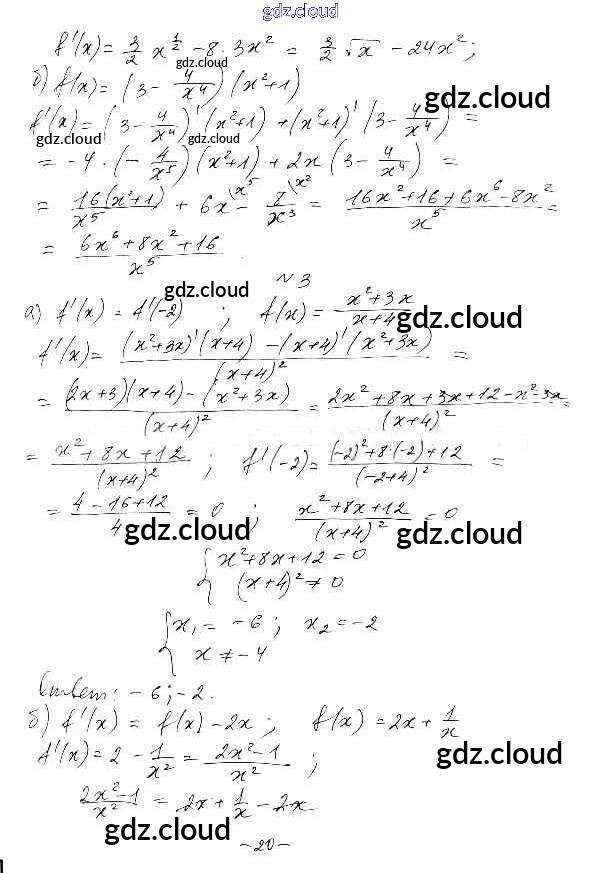 gdz.cloud
f'(x) = 3/2 x^(1/2) - 8·3x² = 3/2 √x - 24x²;
gdz.cloud
б) f(x) = (3 - 4/x⁴)(x²+1)
gdz.cloud
f'(x) = (3 - 4/x⁴)'(x²+1) + (x²+1)'(3 - 4/x⁴) =
gdz.cloud gdz.cloud
= -4·(-4/x⁵)(x²+1) + 2x(3 - 4/x⁴) =
= 16(x²+1)/x⁵ + 6x\x⁵ - 8/x³\x² = (16x²+16+6x⁶-8x²)/x⁵ =
gdz.cloud
= (6x⁶+8x²+16)/x⁵
N 3
gdz.cloud
а) f'(x) = f'(-2); f(x) = (x²+3x)/(x+4)
gdz.cloud
f'(x) = ((x²+3x)'(x+4) - (x+4)'(x²+3x))/(x+4)² =
= ((2x+3)(x+4) - (x²+3x))/(x+4)² = (2x²+8x+3x+12-x²-3x)/(x+4)² =
= (x²+8x+12)/(x+4)²; f'(-2) = ((-2)²+8·(-2)+12)/(-2+4)² =
= (4-16+12)/4 = 0; (x²+8x+12)/(x+4)² = 0
gdz.cloud gdz.cloud
{ x²+8x+12 = 0
(x+4)² ≠ 0
{ x₁ = -6; x₂ = -2
x ≠ -4
gdz.cloud
Ответ: -6; -2.
б) f'(x) = f(x) - 2x; f(x) = 2x + 1/x
f'(x) = 2 - 1/x² = (2x²-1)/x²;
gdz.cloud
(2x²-1)/x² = 2x + 1/x - 2x
gdz.cloud
-20-